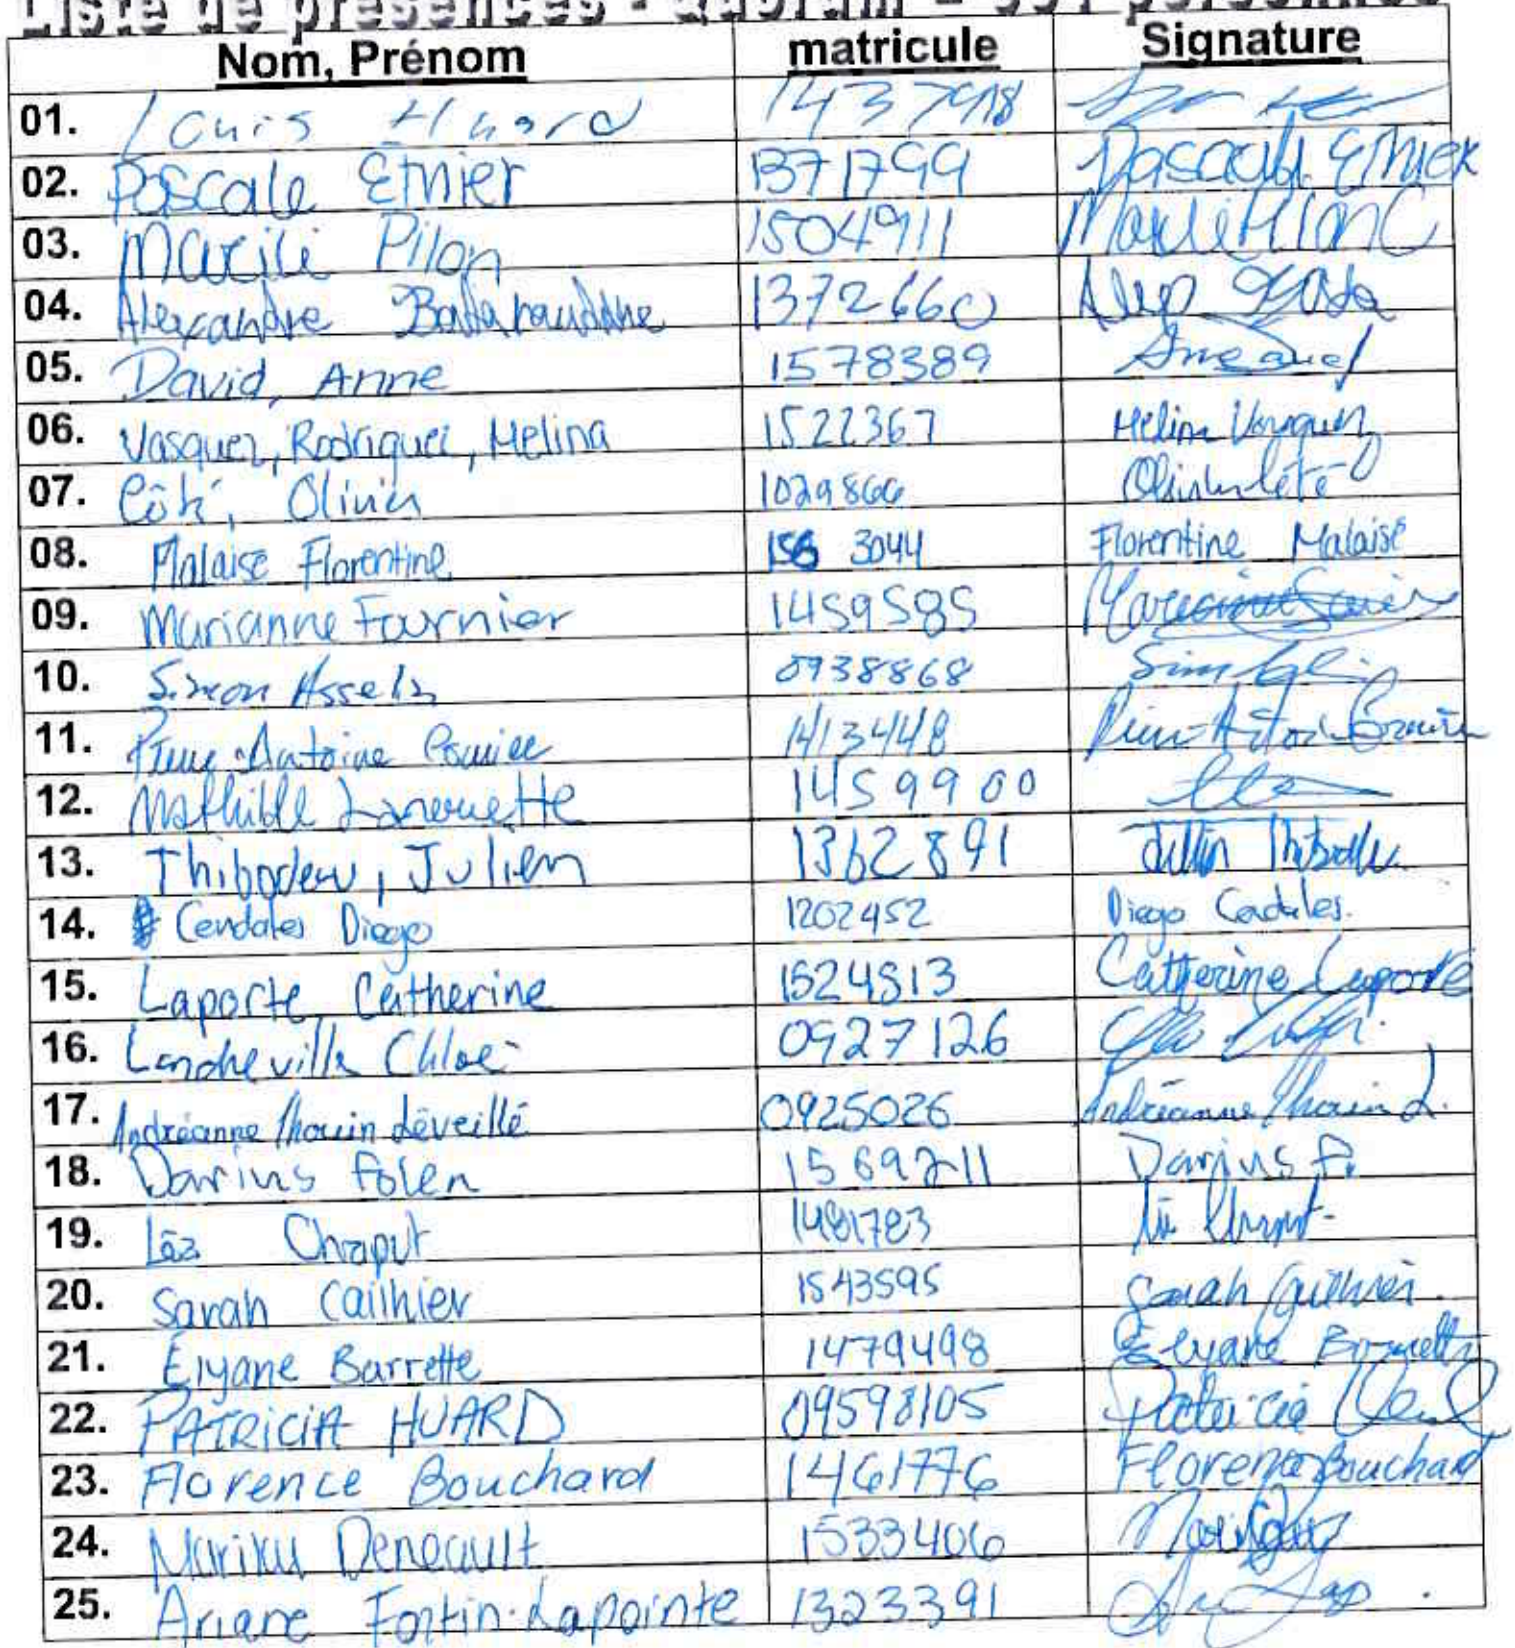 Liste de présences - quorum = 351 personnes
Nom, Prénom matricule Signature
01. Louis Huard 1437918
02. Pascale Ethier 1371799 Pascale Ethier
03. Marili Pilon 1504911
04. Alexandre 1372660
05. David, Anne 1578389
06. Vasquez, Rodriguez, Melina 1522367 Melina Vasquez
07. Côté, Olivier 1029866 Olivier Côté
08. Malaise Florentine 156 3044 Florentine Malaise
09. Marianne Fournier 1459585
10. Simon Asselin 0938868
11. Pierre-Antoine 1413448 Pierre-Antoine
12. Mathilde Lanouette 1459900
13. Thibodeau, Julien 1362891 Julien Thibodeau
14. Cendales Diego 1202452 Diego Cendales.
15. Laporte, Catherine 1524513 Catherine Laporte
16. Chloé 0927126
17. Andréanne Thouin Léveillé 0925026 Andréanne Thouin L.
18. Darius Folen 1569211 Darius F.
19. Léa Chaput 1481783
20. Sarah Cailhier 1543595 Sarah Cailhier
21. Elyane Barrette 1479498 Elyane Barrette
22. PATRICIA HUARD 09598105 Patricia
23. Florence Bouchard 1461776 Florence Bouchard
24. Deneault 1533406
25. Ariane Fortin-Lapointe 1323391